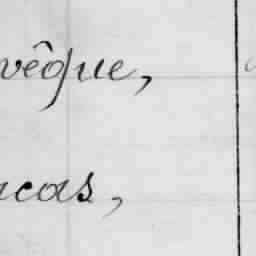 vêque,
cas,